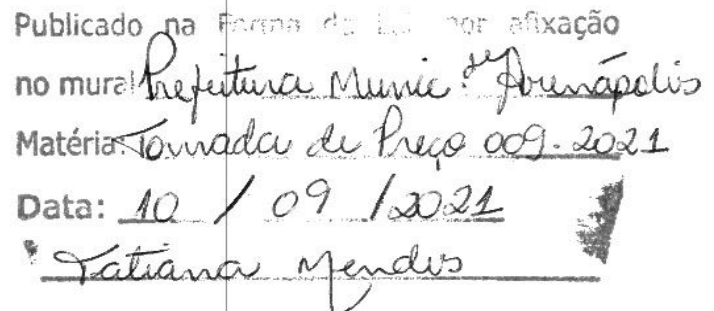 Publicado na Forma da Lei por afixação
no mural Prefeitura Munic. de Arenápolis
Matéria: Tomada de Preço 009-2021
Data: 10 / 09 / 2021
Tatiana Mendes